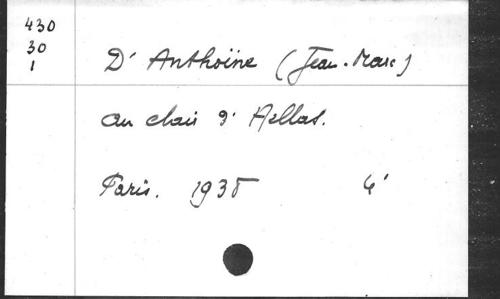 430
30
1
D' Anthoïne (Jean-Marc)
au clair d' Hellas.
Paris. 1935 4'